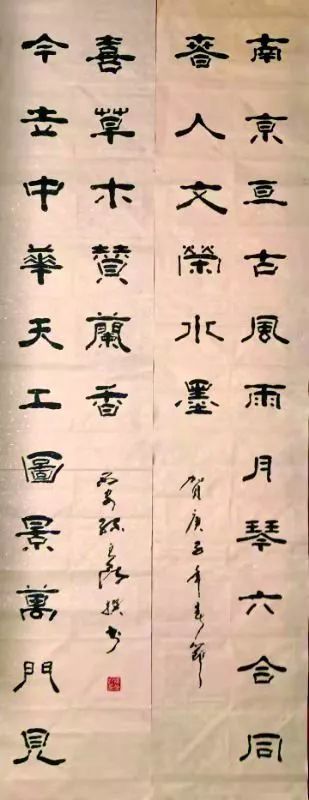 南京亘古風雨月琴六合同
春人文榮水墨
賀庚子年春節
今立中華天工圖景萬門見
喜草木贊蘭香
西安
撰书